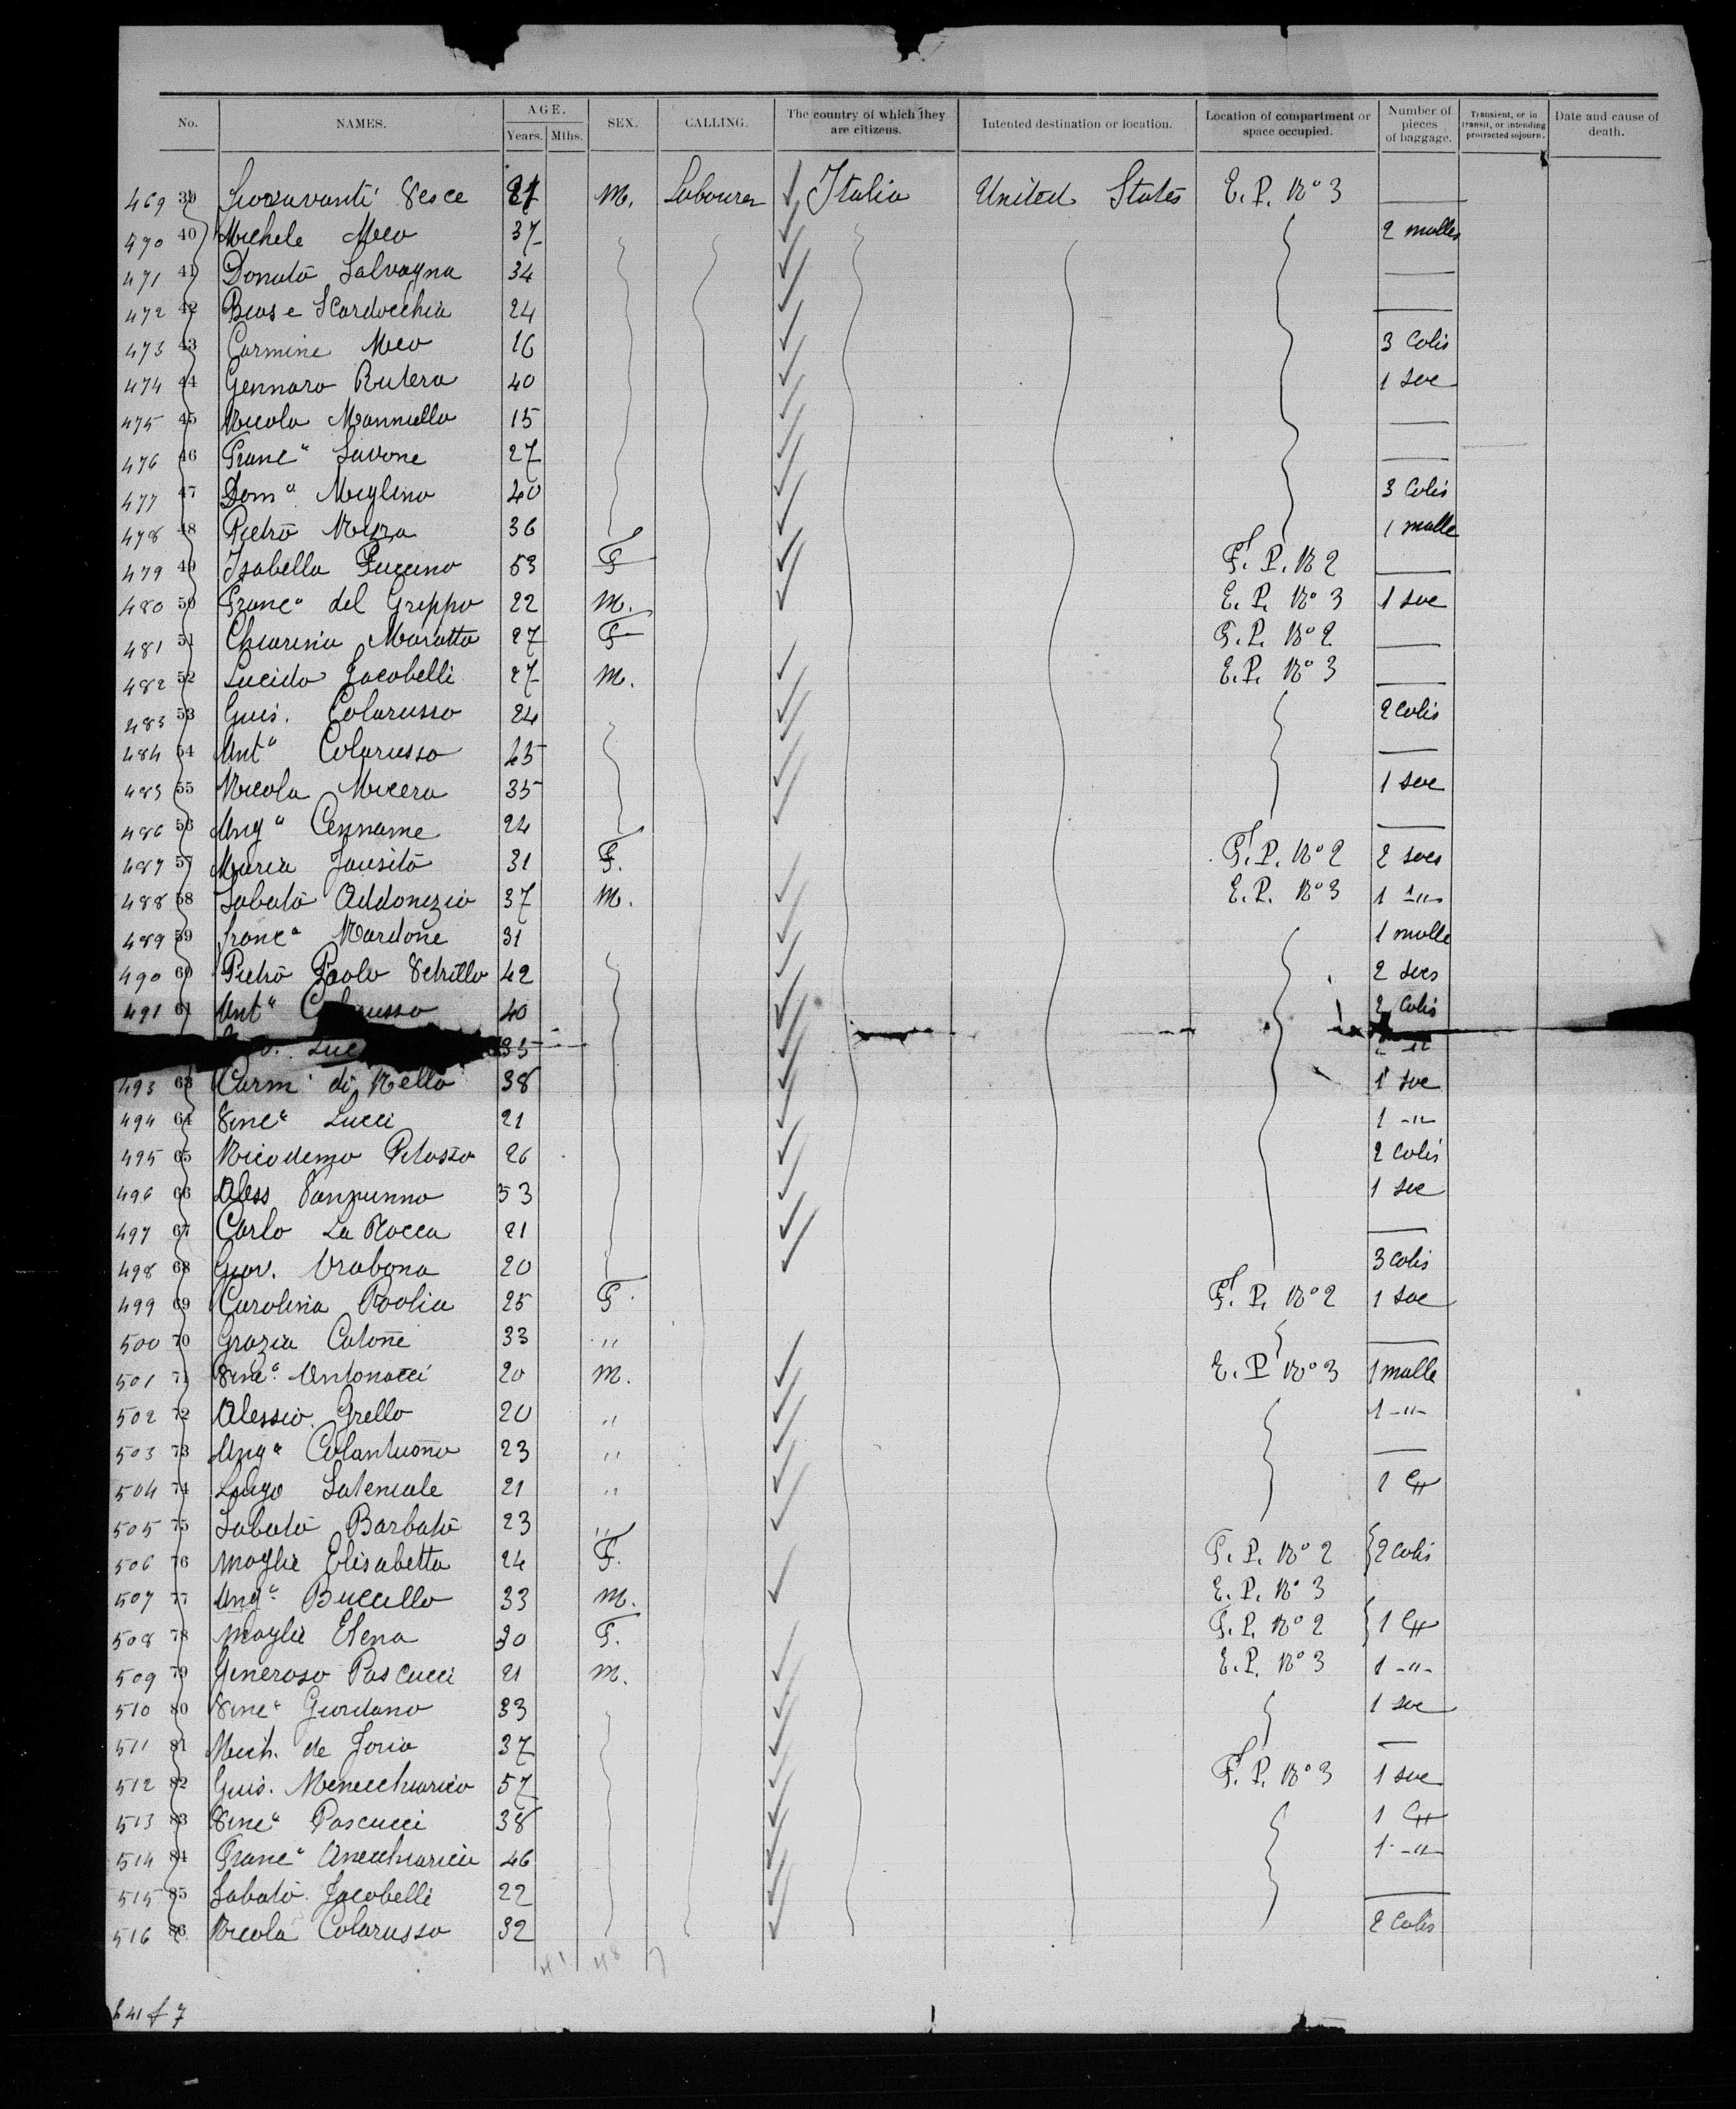 No. NAMES. AGE. Years. Mths. SEX. CALLING. The country of which they are citizens. Intented destination or location. Location of compartment or space occupied. Number of pieces of baggage. Transient, or in transit, or intending protracted sojourn. Date and cause of death.
469 39 Vesce M. Labourer Italia United States E. P. No 3
470 40 Michele Meo 37 2 malles
471 41 Donato Salvagna 34
472 42 Biase Scardocchia 24
473 43 Carmine Meo 16 3 Colis
474 44 Gennaro Rutera 40 1 sac
475 45 Nicola Manniello 15
476 46 Franco Savone 27
477 47 Domo Meglino 40 3 Colis
478 48 Pietro 36 1 malle
479 49 Isabella 53 F F. P. No 2
480 50 Franco del Greppo 22 M. E. P. No 3 1 sac
481 51 Chiarina Marotta 27 F F. P. No 2
482 52 Lucido Jacobelli 27 M. E. P. No 3
483 53 Guis. Colarusso 24 2 Colis
484 54 Anto Colarusso
485 55 Nicola Micera 35 1 sac
486 56 Ango Cenname 24
487 57 Maria 31 F. F. P. No 2 2 sacs
488 58 Sabato Addonizio 37 M. E. P. No 3 1 -"-
489 59 Franco Nardone 31 1 malle
490 60 Pietro Paolo Vetrillo 42 2 sacs
491 61 Anto 40 2 Colis
35
493 63 Carm di Nello 38 1 sac
494 64 Vinco Lucci 21 1 -"-
495 65 Nicodemo Pelosso 26 2 Colis
496 66 Aless 53 1 sac
497 67 Carlo La Rocca 21
498 68 Giov. Urabona 20 3 Colis
499 69 Carolina Paolia 25 F. F. P. No 2 1 sac
500 70 Grazia Catone 33 "
501 71 Vinco Antonacci 20 M. E. P. No 3 1 malle
502 72 Alessio Grello 20 " 1 -"-
503 73 Ango Colantuono 23 "
504 74 Luigo 21 "
505 75 Sabato Barbato 23 "
506 76 Moglie Elisabetta 24 F. F. P. No 2 2 Colis
507 77 Ango Buccello 33 M. E. P. No 3
508 78 Moglie Elena 30 F. F. P. No 2
509 79 Generoso Pascucci 21 M. E. P. No 3 1 -"-
510 80 Vinco Giordano 33 1 sac
511 81 Mich. de Joria 37
512 82 Guis. Menecchiarico 57 F. P. No 3 1 sac
513 83 Vinco Pascucci 38
514 84 Franco Anecchiarico 46 1 -"-
515 85 Sabato Jacobelli 22
516 86 Nicola Colarusso 32 2 Colis